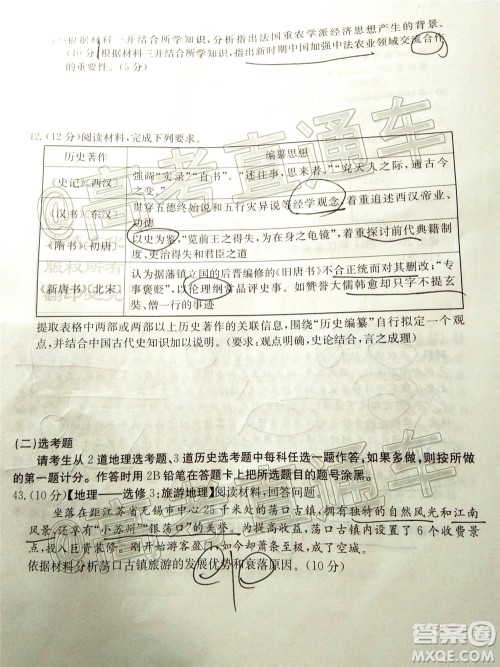 (2)根据材料二并结合所学知识，分析指出法国重农学派经济思想产生的背景。
(10分)根据材料三并结合所学知识，指出新时期中国加强中法农业领域交流合作
的重要性。(5分)
42.(12分)阅读材料，完成下列要求。
历史著作 编纂思想
《史记》(西汉) 强调“实录”“百书”。“述往事，思来者”，“宛天人之际，通古今
之变。”
《汉书》(东汉) 贯穿五德终始说和五行灾异说等经学观念，着重叙述西汉帝业、
功德
《隋书》(初唐) 以史为鉴，“览前王之得失，为在身之龟镜”，着重探讨前代典籍制
度，史治得失和君臣之道
《新唐书》(北宋) 认为据藩镇立国的后晋编修的《旧唐书》不合正统而对其删改；“专
事褒贬”，以伦理纲常品评史事。如赞誉大儒韩愈却只字不提玄
奘、僧一行的事迹
提取表格中两部或两部以上历史著作的关联信息，围绕“历史编纂”自行拟定一个观
点，并结合中国古代史知识加以说明。(要求：观点明确，史论结合，言之成理)
(二)选考题
请考生从2道地理选考题、3道历史选考题中每科任选一题作答，如果多做，则按所做
的第一题计分。作答时用2B铅笔在答题卡上把所选题目的题号涂黑。
43.(10分)【地理——选修3：旅游地理】阅读材料，回答问题。
坐落在距江苏省无锡市中心25千米处的荡口古镇，拥有独特的自然风光和江南
风景，还享有“小苏州”“银荡口”的美誉。为提高收益，荡口古镇内设置了6个收费景
点，投入巨资装修。刚开始游客盘门，如今却萧条至极，成了空城。
依据材料分析荡口古镇旅游的发展优势和衰落原因。(10分)
高考直通车
版权所有
翻印必究
答案圈
MXQE.COM